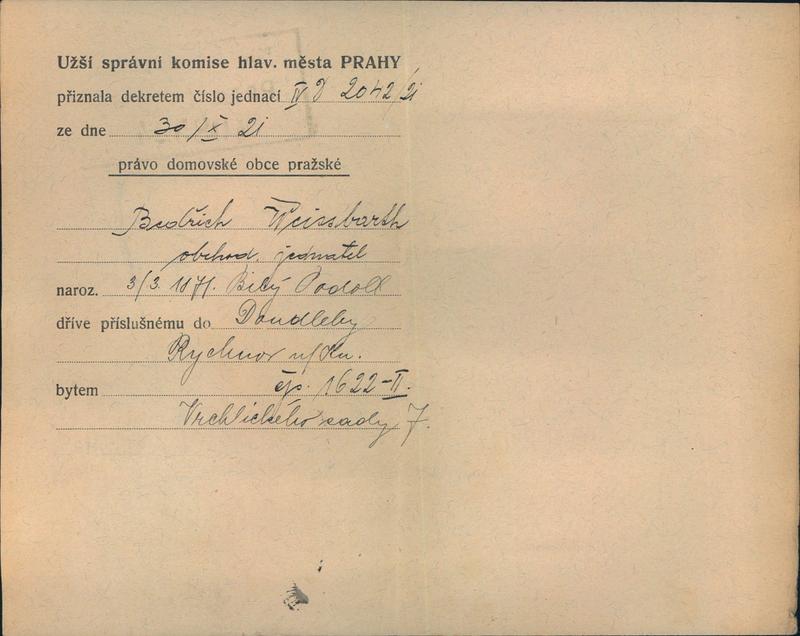 Užší správní komise hlav. města PRAHY
přiznala dekretem číslo jednací IV D 2042/21
ze dne 30/X 21
právo domovské obce pražské
Bedřich Weissbarth
obchod. jednatel
naroz. 3/3. 1871. Bílý Podolí
dříve příslušnému do Doudleby
Rychnov n/Kn.
bytem čp. 1622-II.
Vrchlického sady 7.